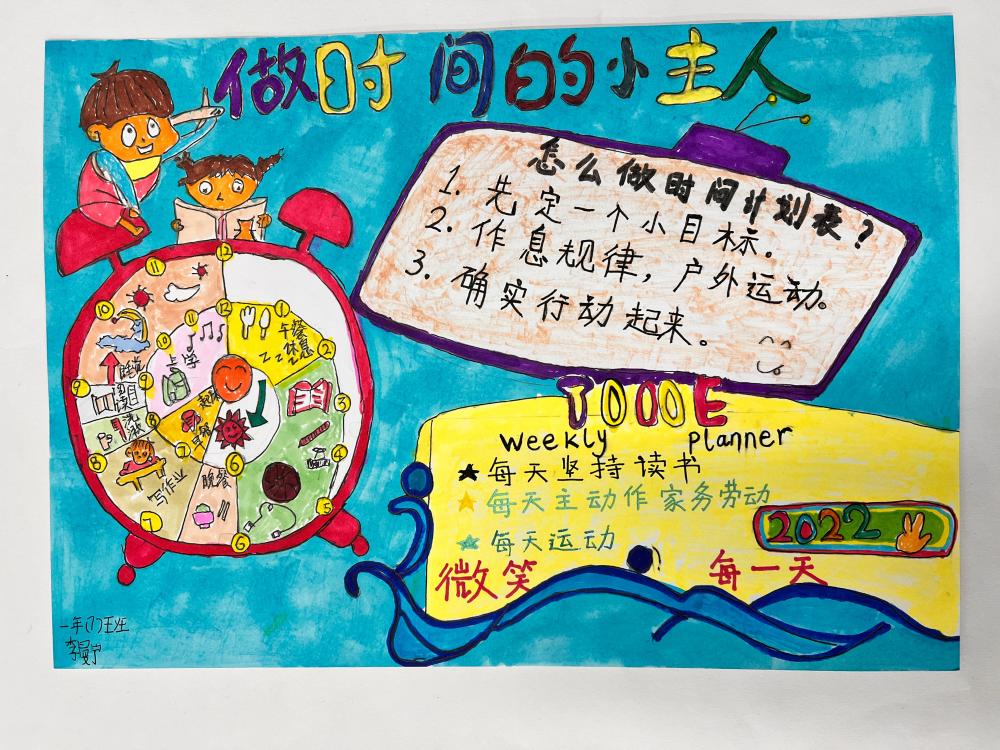 做时间的小主人
怎么做时间计划表?
1. 先定一个小目标。
2. 作息规律,户外运动。
3. 确实行动起来。
TOOOE
weekly planner
★每天坚持读书
★每天主动作家务劳动
★每天运动
2022
微笑 每一天
12
11
10
9
8
7
6
12
1
2
3
4
5
6
11
10
9
8
7
上学
午餐
休息
zzz
睡觉
阅读
洗漱
写作业
晚餐
起床
早餐
一年(7)班